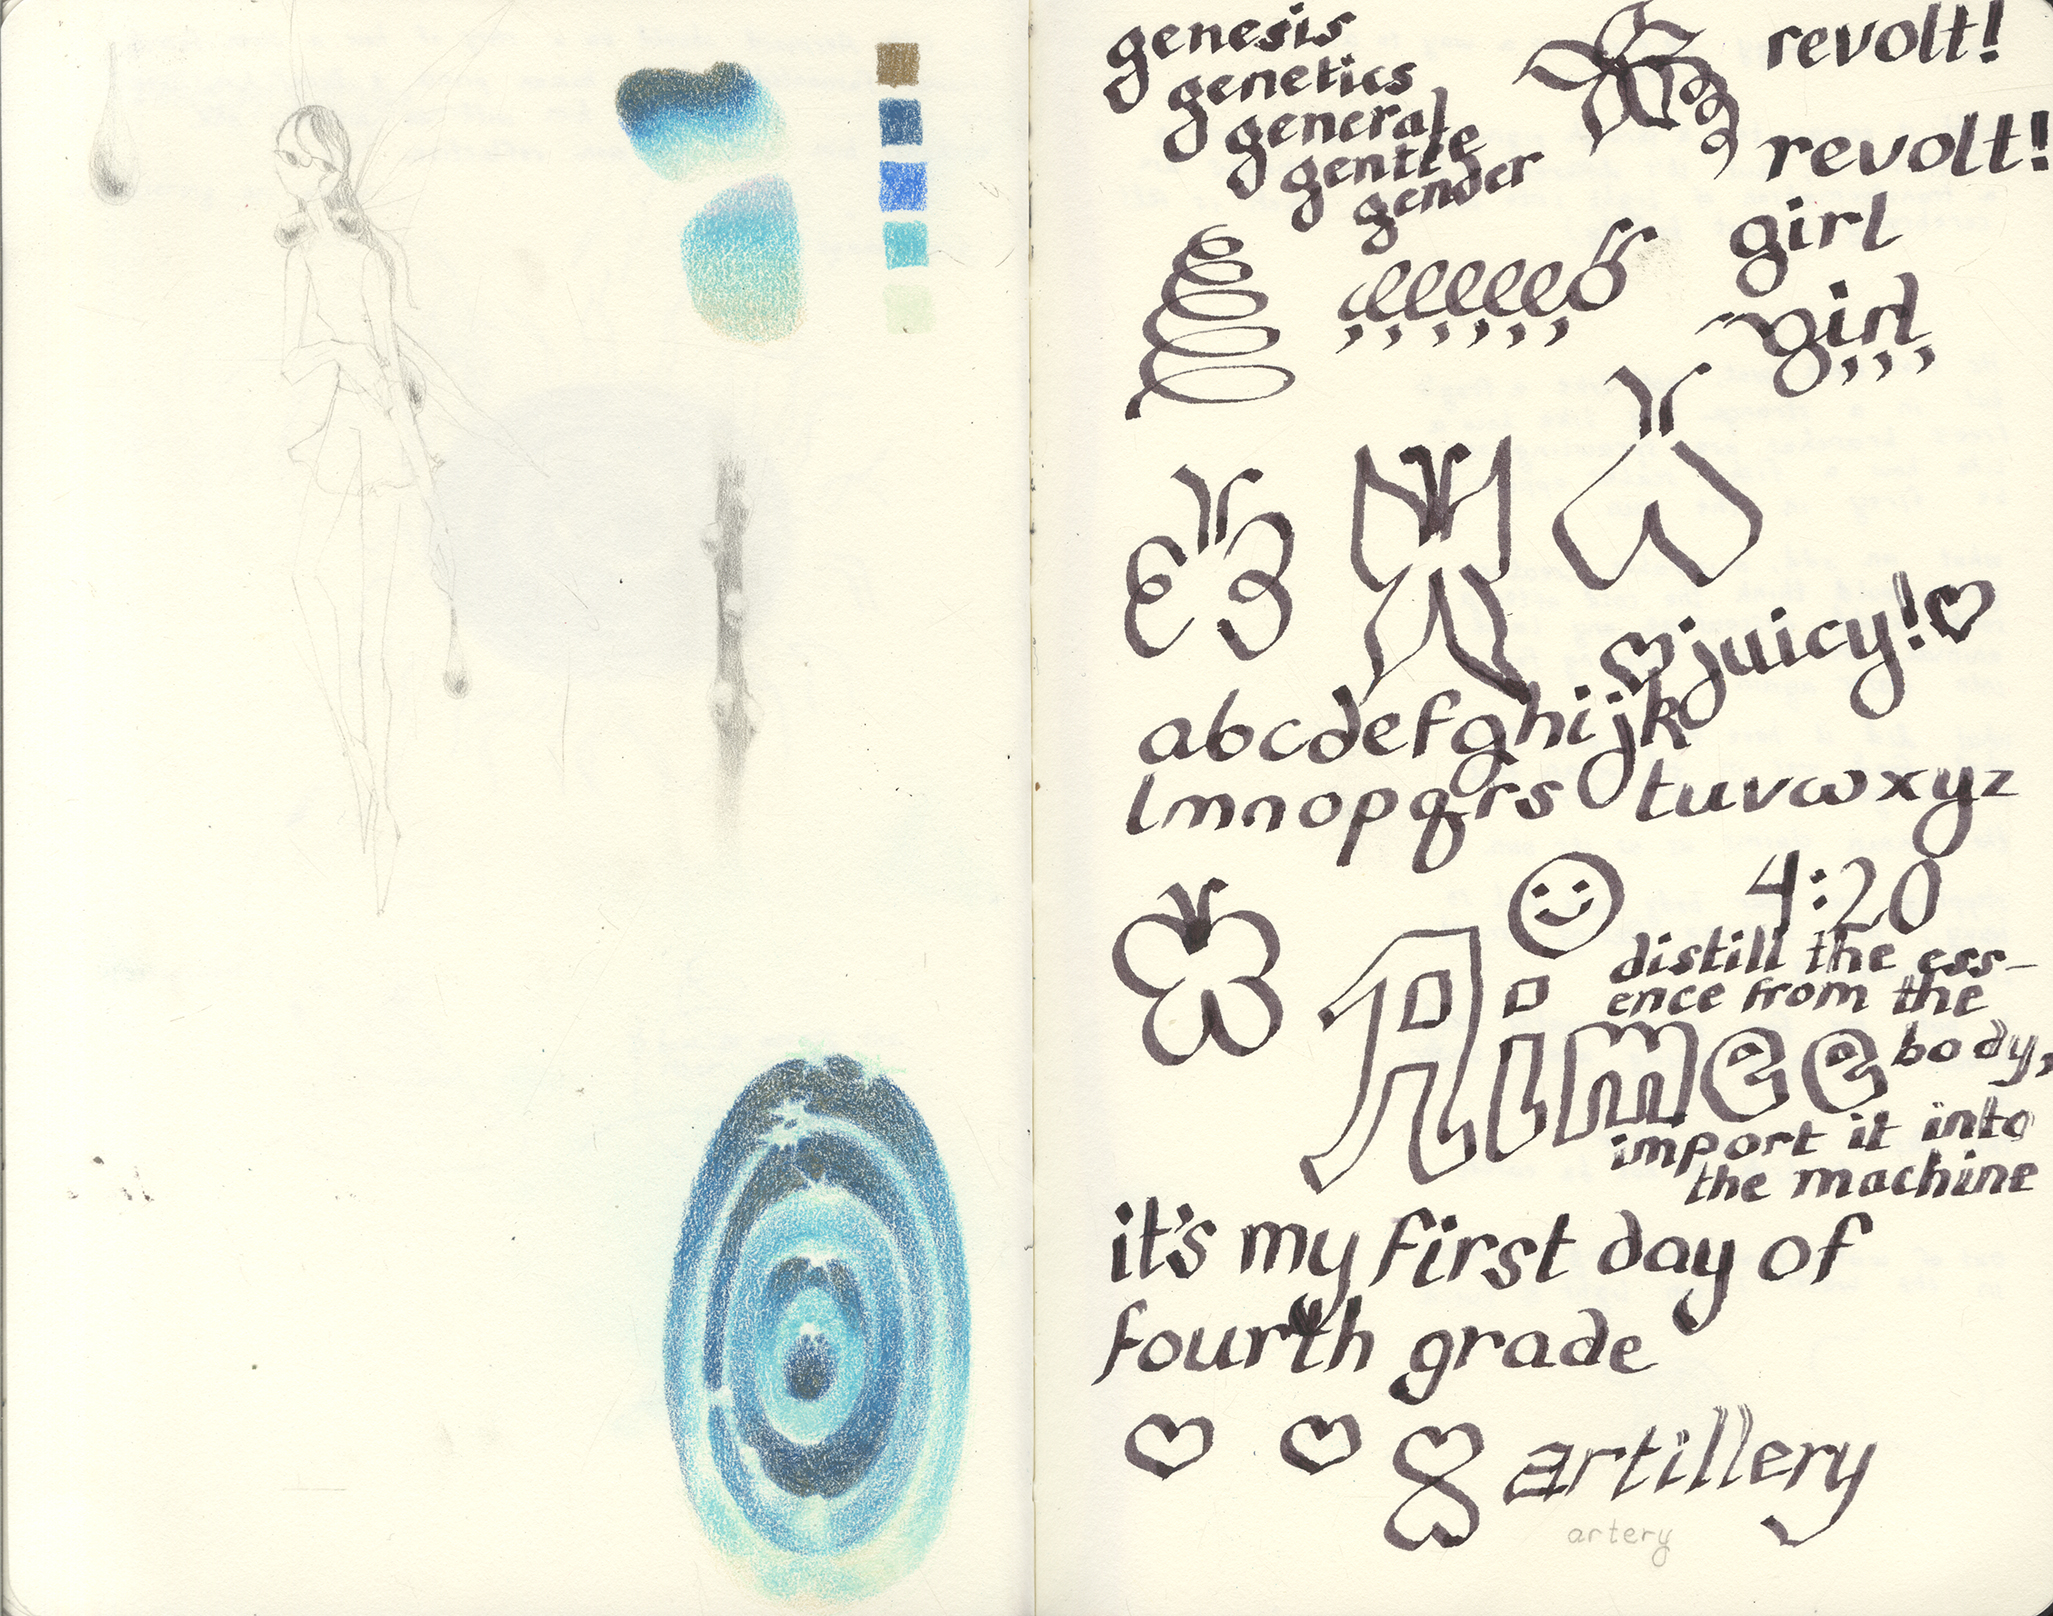 genesis
genetics
general
gentle
gender
revolt!
revolt!
girl
girl,,,
juicy!
abcdefghijk
lmnopqrs tuvwxyz
4:20
distill the ess-
ence from the
body,
import it into
the machine
Aimee
it's my first day of
fourth grade
artillery
artery